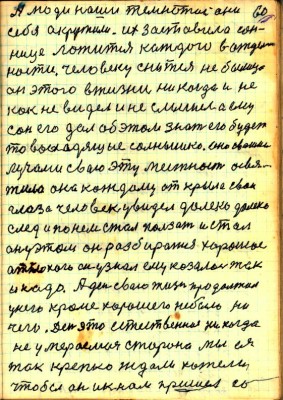 А люди наши темнотой они 60
себя окружили. их заставила сон-
ница ложится каждого в отдель
ности, человеку снится не былица
он этого в жизни никогда и не
как не видел и не слышал а ему
сон его дал об этом знать его будет
то восходящие солнышко. оно своими
лучами сваю эту местност освя-
тила она каждому открыла свои
глаза человек увидел далень далеко
след и по нем стал ползат и стал
он у этом он разбиратся хорошое
от плохого он узнал ему козалос так
и надо. А ден сваю тишь продолжал
у него кроме хорошего небыло ни
чего. Ден это естественное никогда
не умераемая сторона мы ея
так крепко ждали хотели
чтобы он и к нам пришел со